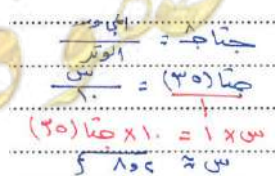 جتا جـ = المجاور / الوتر
جتا (٣٥) / ١ = س / ١٠
س × ١ = ١٠ × جتا (٣٥)
س ≈ ٨,٢